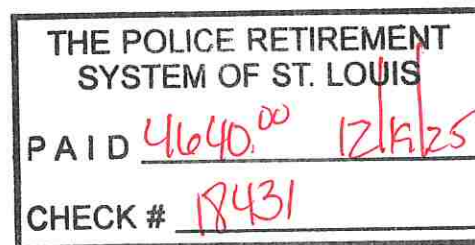 THE POLICE RETIREMENT
SYSTEM OF ST. LOUIS
PAID 4640.00 12/19/25
CHECK # 18431